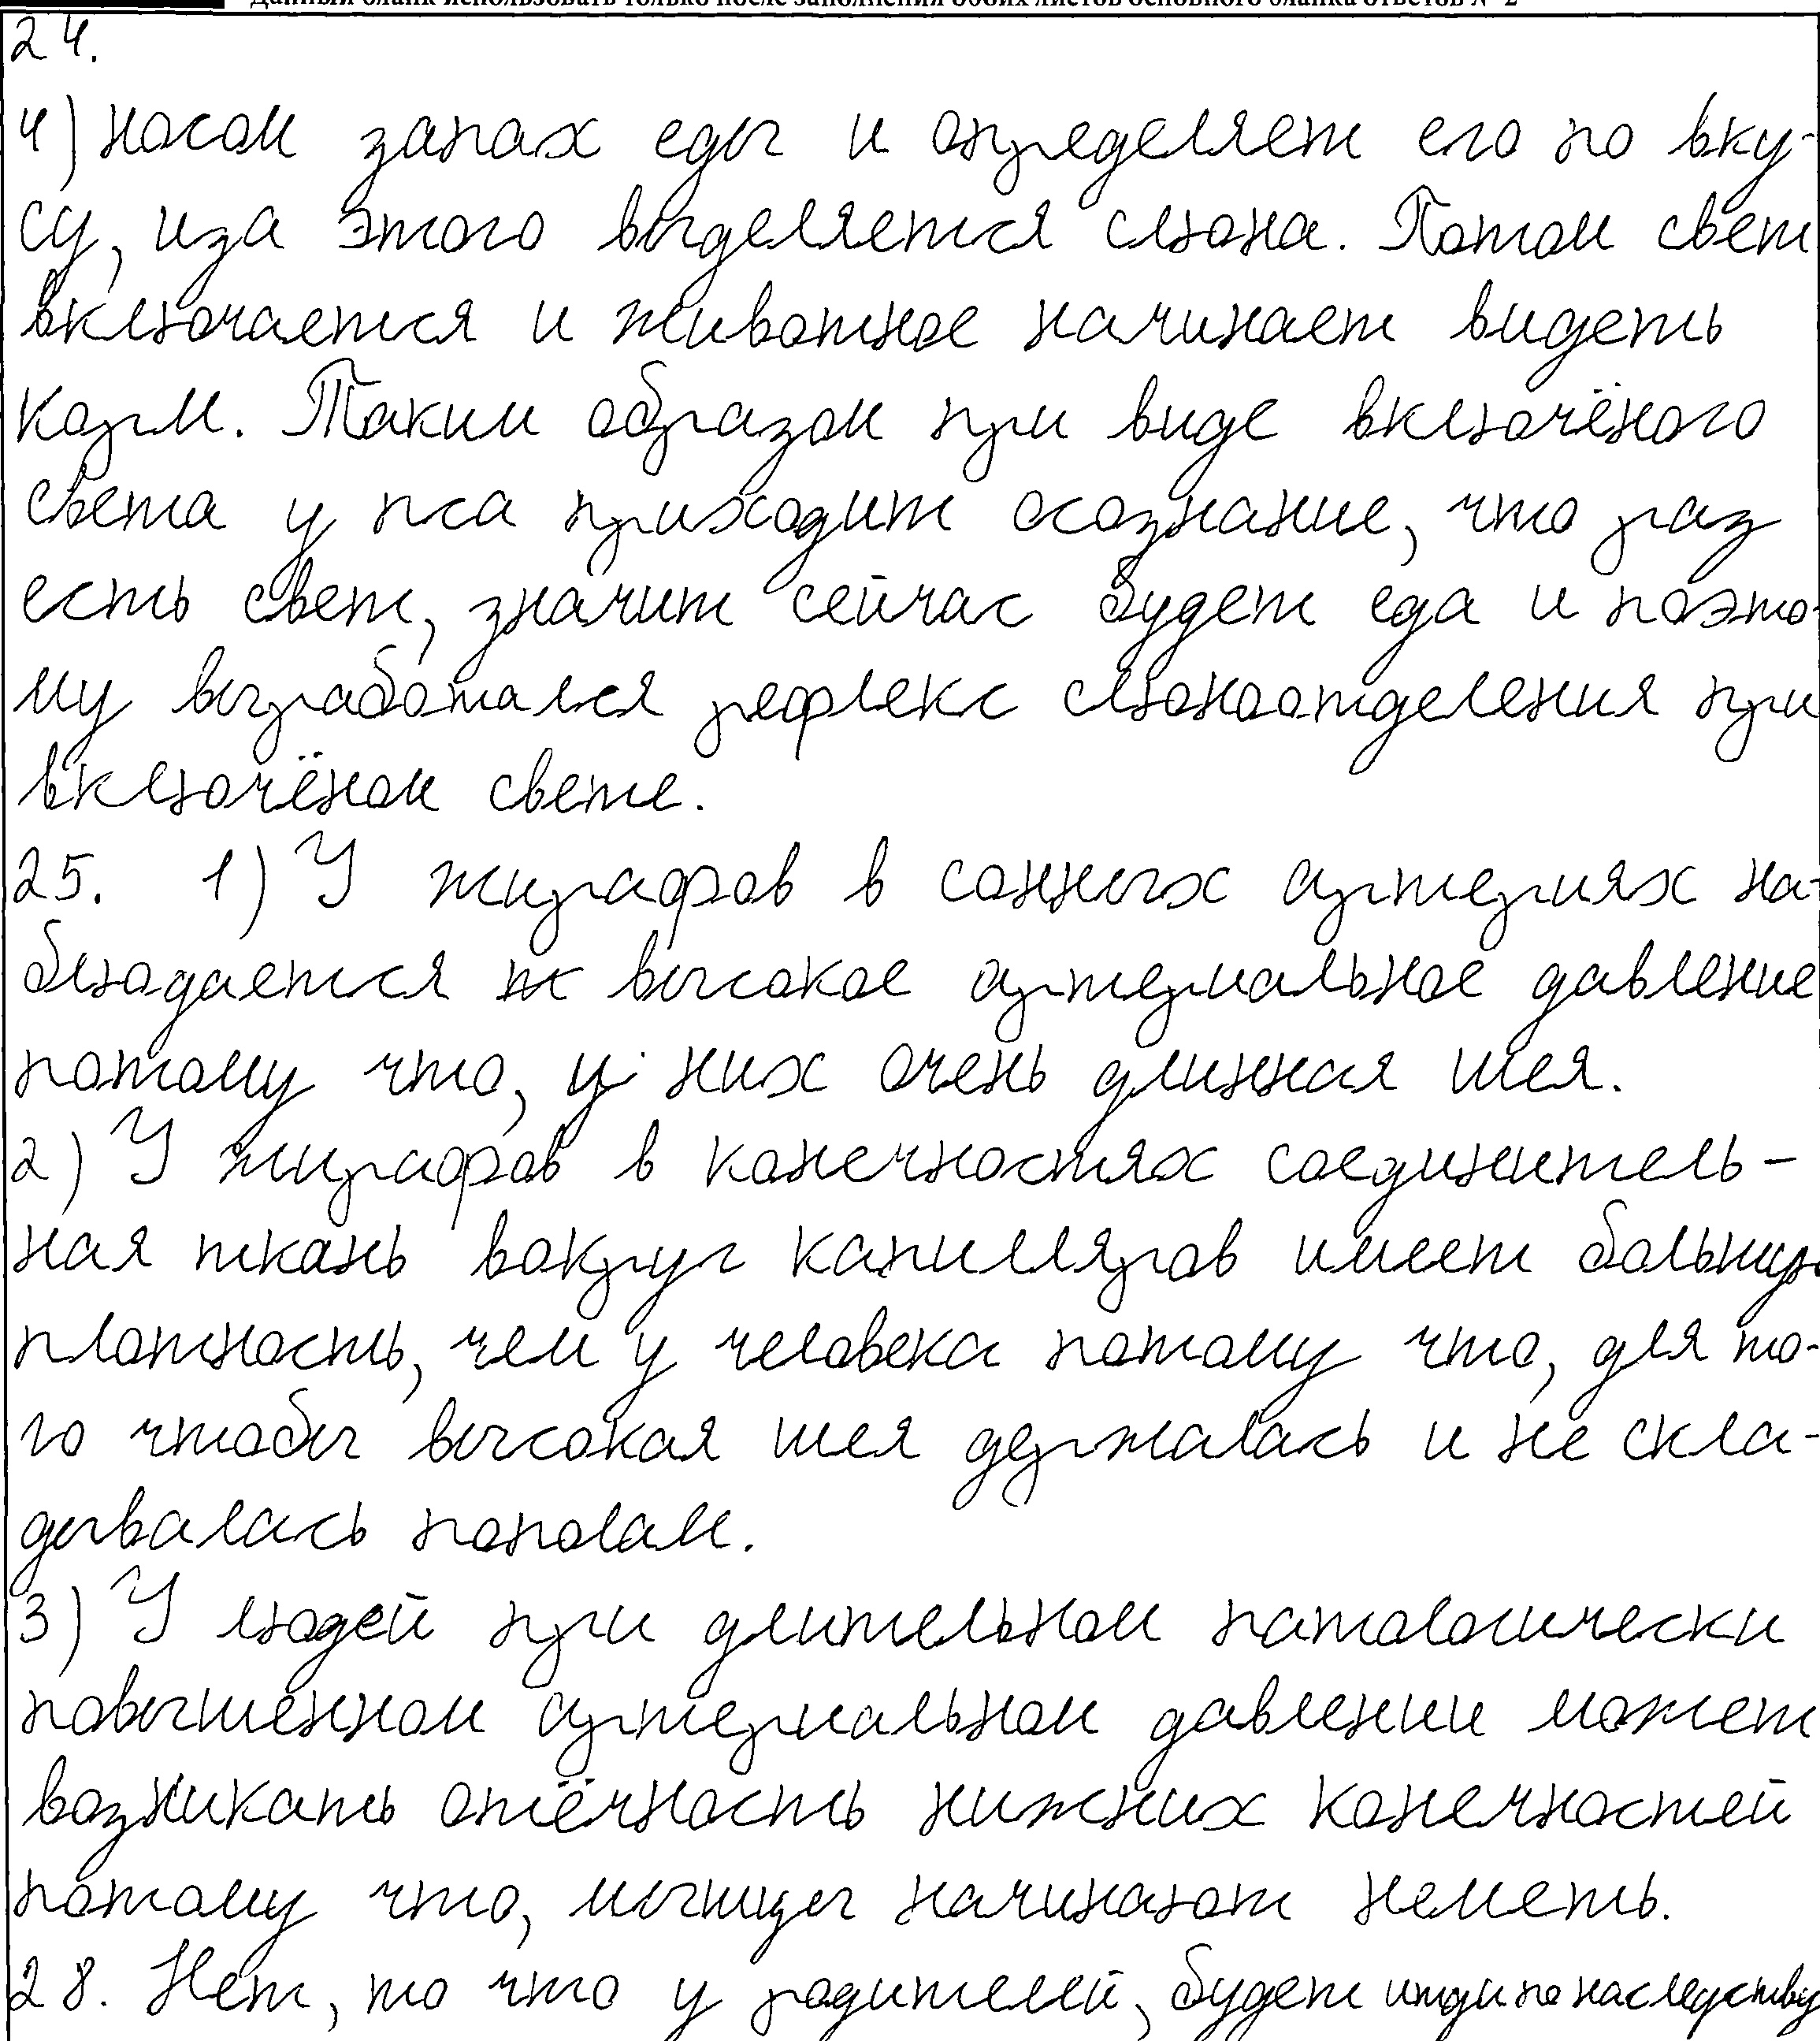 Данный бланк использовать только после заполнения обоих листов основного бланка ответов № 2
24.
4) носом запах еды и определяет его по вку-
су, иза этого выделяется слюна. Потом свет
включается и животное начинает видеть
корм. Таким образом при виде включёного
света у пса приходит осознание, что раз
есть свет, значит сейчас будет еда и поэто-
му выработался рефлекс слюноотделения при
включёном свете.
25. 1) У жирафов в сонных артериях на-
блюдается высокое артериальное давление
потому что, у них очень длинная шея.
2) У жирафов в конечностях соединитель-
ная ткань вокруг капилляров имеет большую
плотность, чем у человека потому что, для то-
го чтобы высокая шея держалась и не скла-
дывалась пополам.
3) У людей при длительном патологически
повышенном артериальном давлении может
возникать отёчность нижних конечностей
потому что, мышцы начинают неметь.
28. Нет, то что у родителей, будет итди по наследству